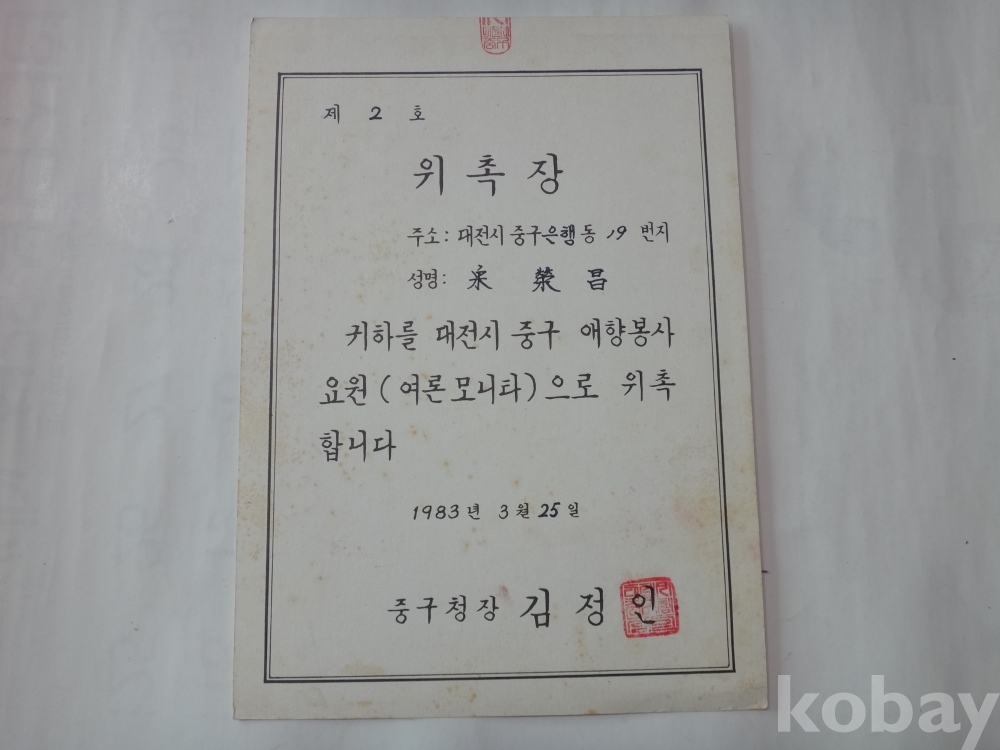 제 2 호
위촉장
주소: 대전시 중구 은행동 19 번지
성명: 宋 榮 昌
귀하를 대전시 중구 애향봉사
요원(여론모니타)으로 위촉
합니다
1983년 3월 25일
중구청장 김정인
kobay